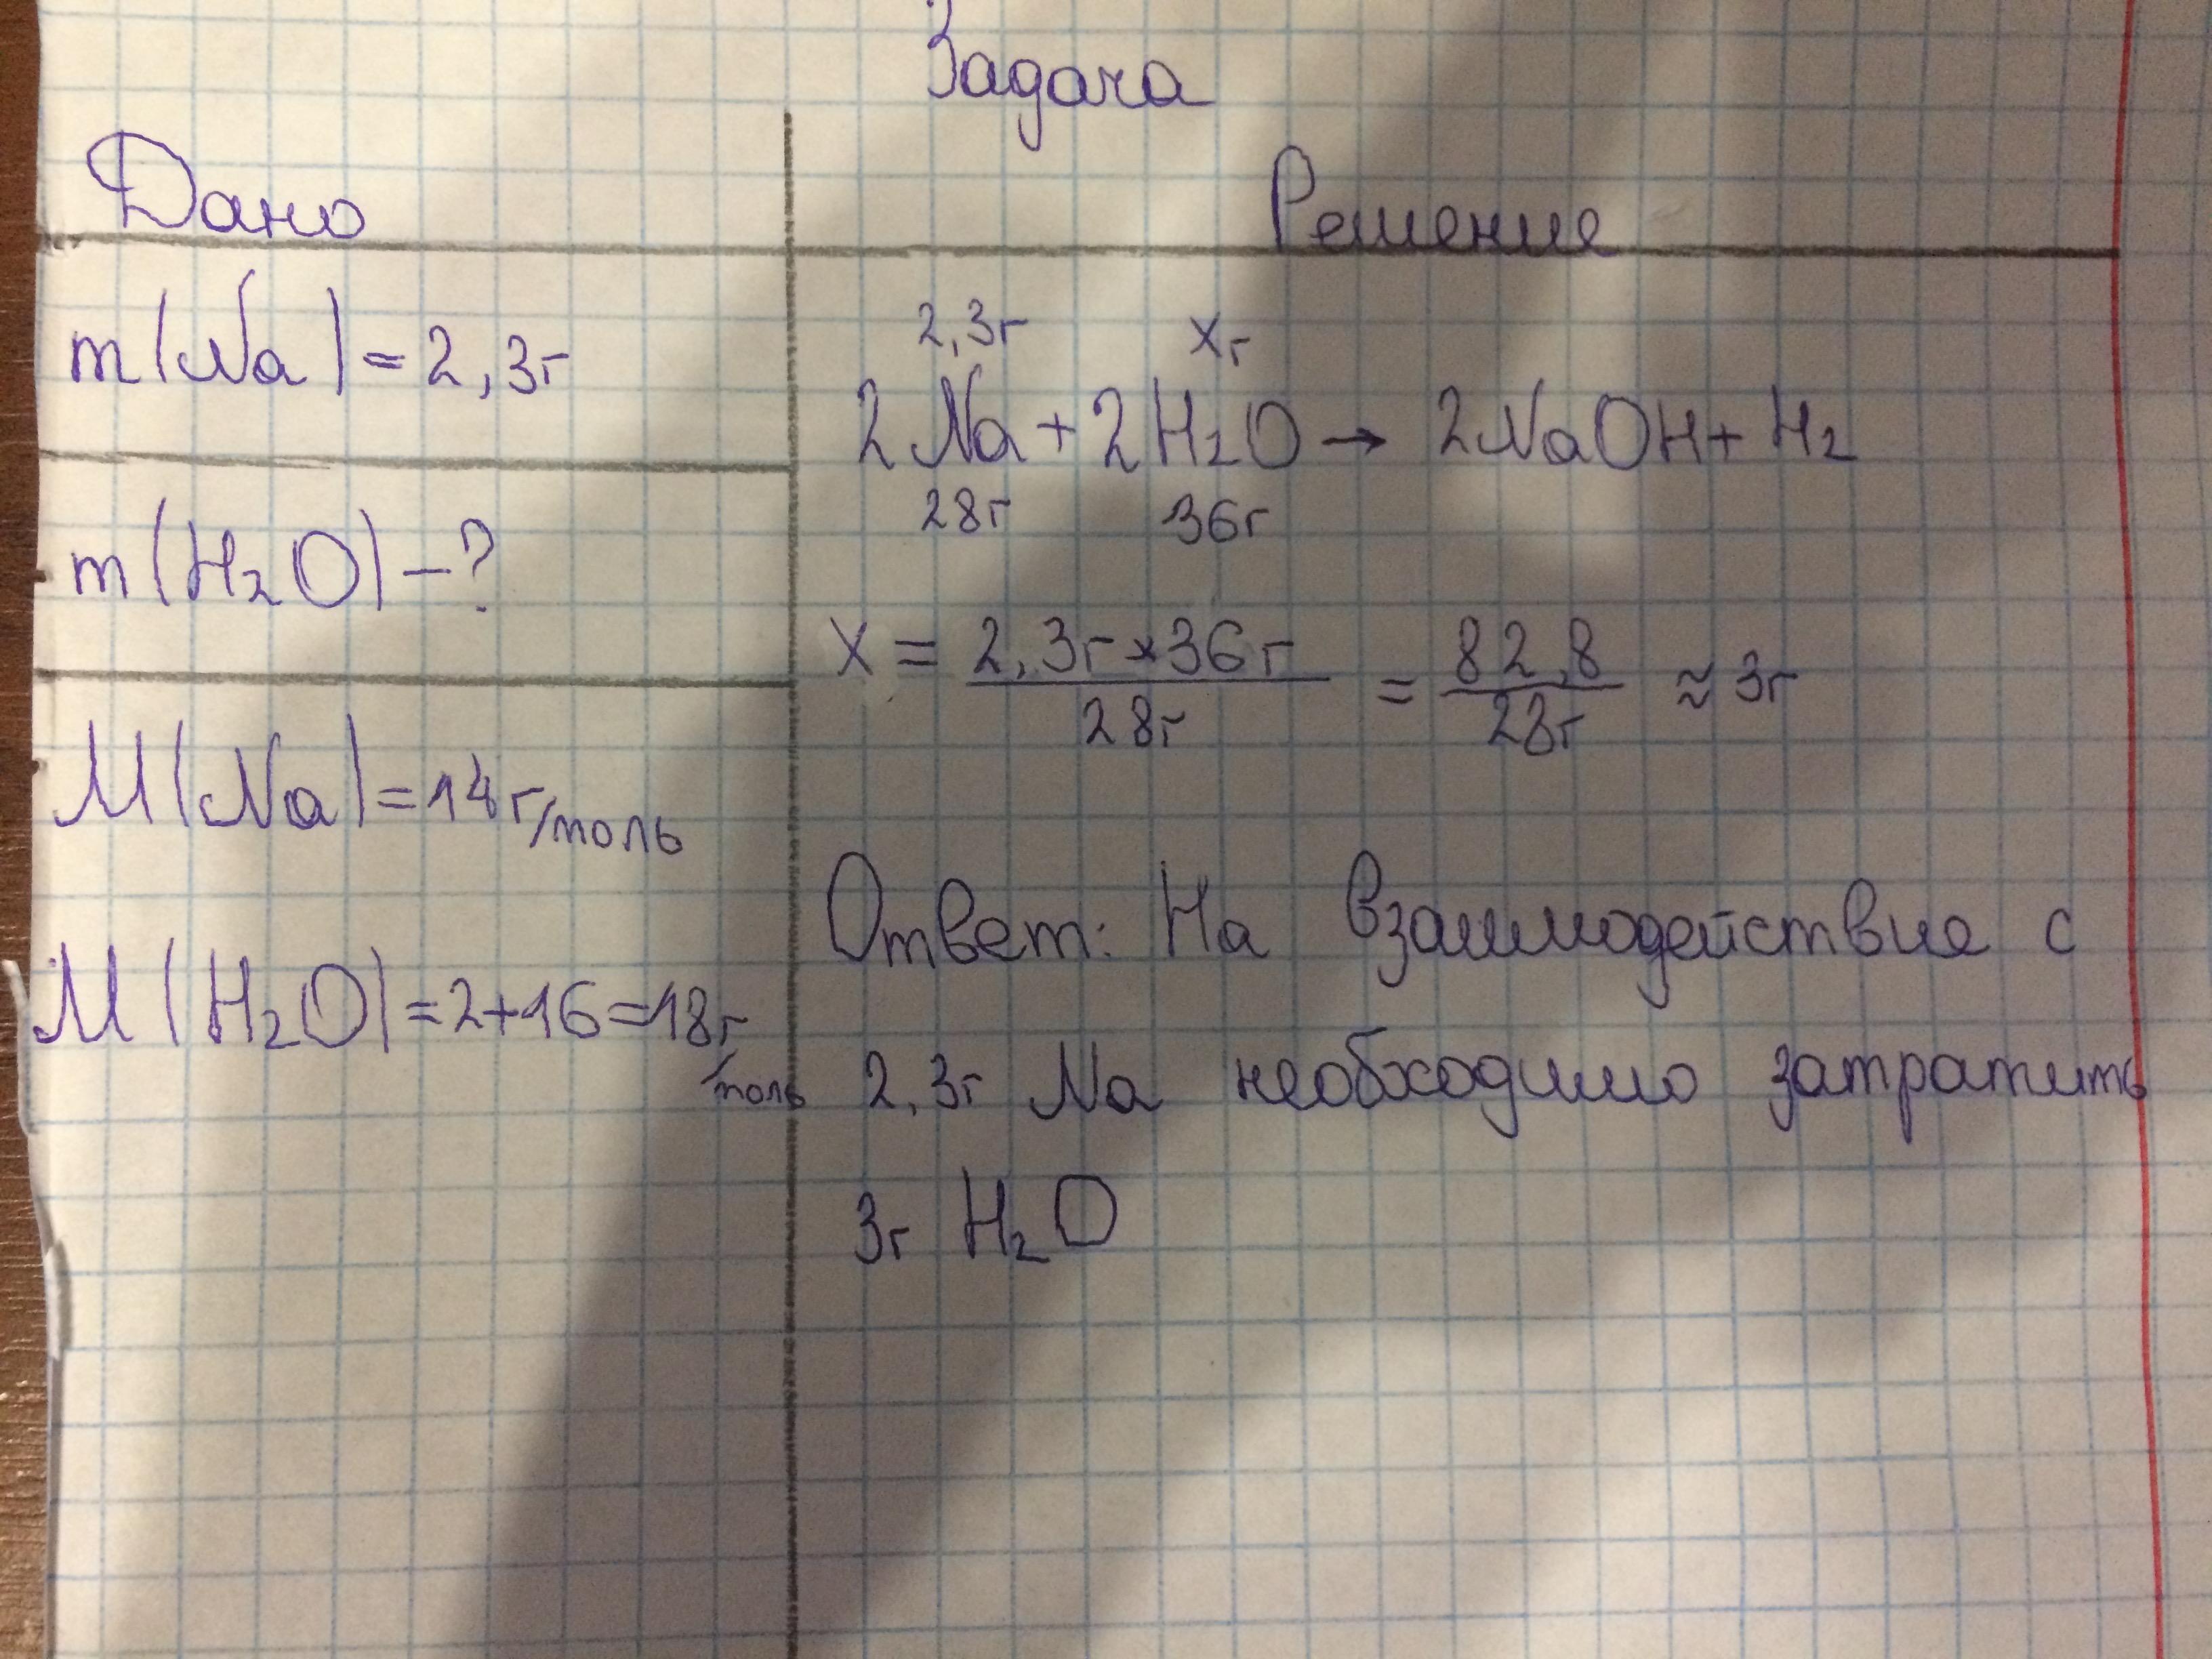 Задача
Дано
m(Na)=2,3г
m(H₂O)-?
M(Na)=14г/моль
M(H₂O)=2+16=18г/моль
Решение
2,3г хг
2Na+2H₂O→2NaOH+H₂
28г 36г
X = 2,3г*36г/28г = 82,8/28г ≈ 3г
Ответ: На взаимодействие с
2,3г Na необходимо затратить
3г H₂O